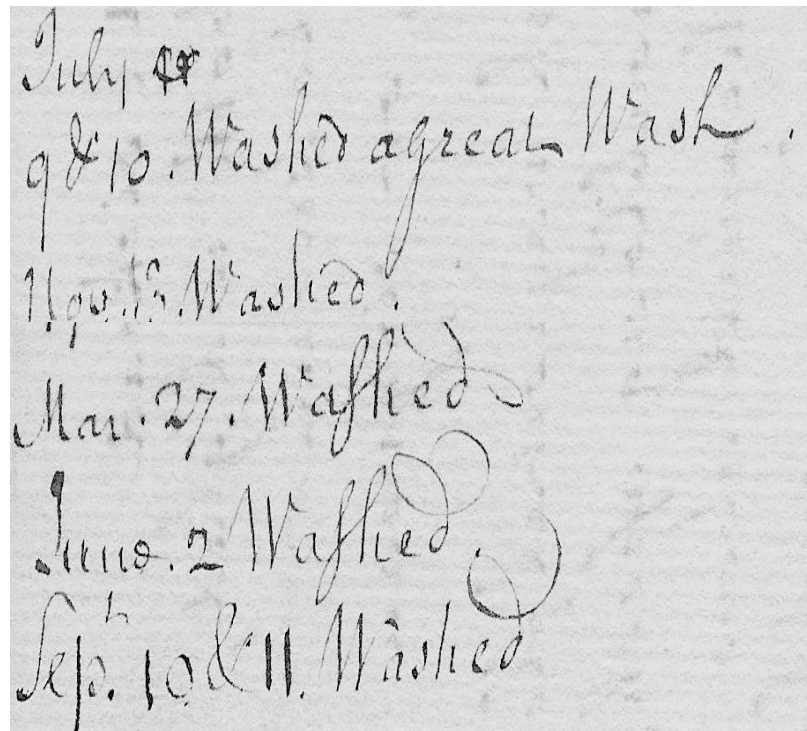 July
9 & 10. Washed a great Wash.
Washed.
Mar. 27. Waſhed
June. 2 Waſhed.
Sept. 10 & 11. Washed